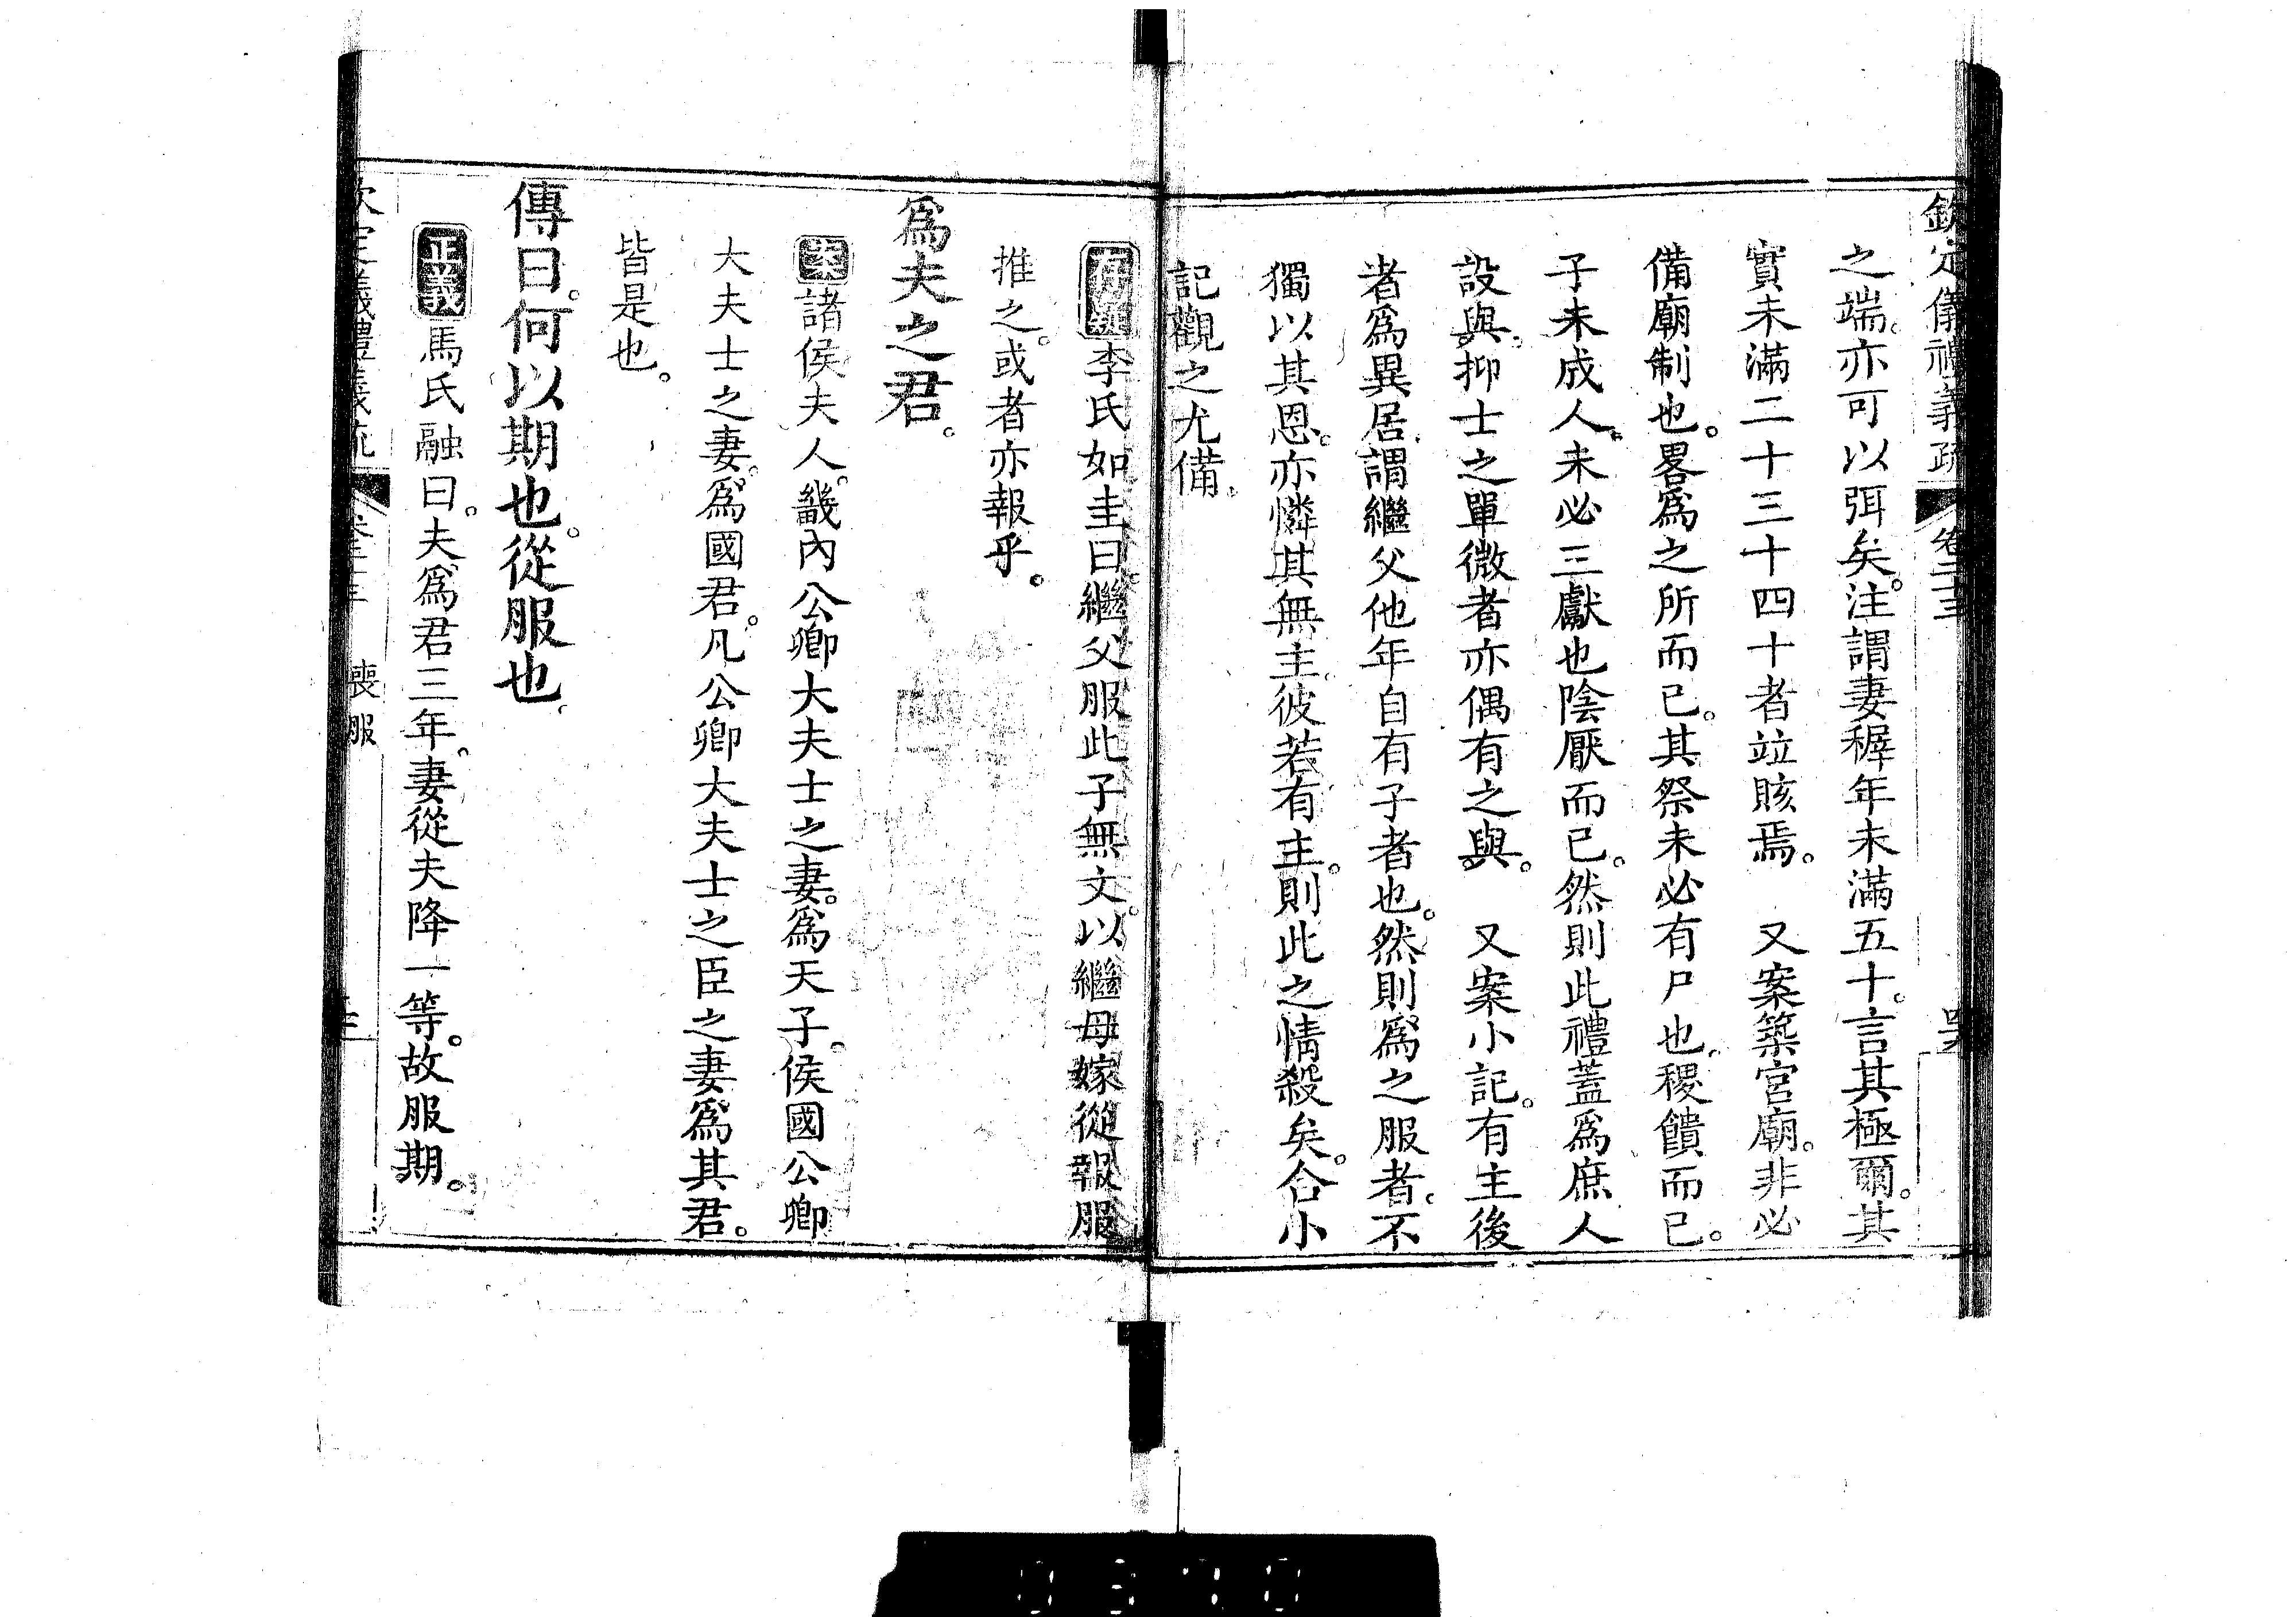 欽定儀禮義疏　卷二十三
之端。亦可以弭矣。注謂妻穉年未滿五十。言其極爾。其
實未滿二十三十四十者竝賅焉。　又案築宮廟。非必
備廟制也。畧爲之所而已。其祭未必有尸也。稷饋而已。
子未成人。未必三獻也陰厭而已。然則此禮蓋爲庶人
設與。抑士之單微者亦偶有之與。　又案小記。有主後
者爲異居。謂繼父他年自有子者也。然則爲之服者。不
獨以其恩。亦憐其無主。彼若有主。則此之情殺矣。合小
記觀之尤備。
李氏如圭曰。繼父服此子無文。以繼母嫁從報服
推之。或者亦報乎。
爲夫之君。
案諸侯夫人。畿內公卿大夫士之妻。爲天子。侯國公卿
大夫士之妻。爲國君。凡公卿大夫士之臣之妻爲其君。
皆是也。
傳曰。何以期也。從服也。
正義馬氏融曰。夫爲君三年。妻從夫降一等。故服期。
喪服